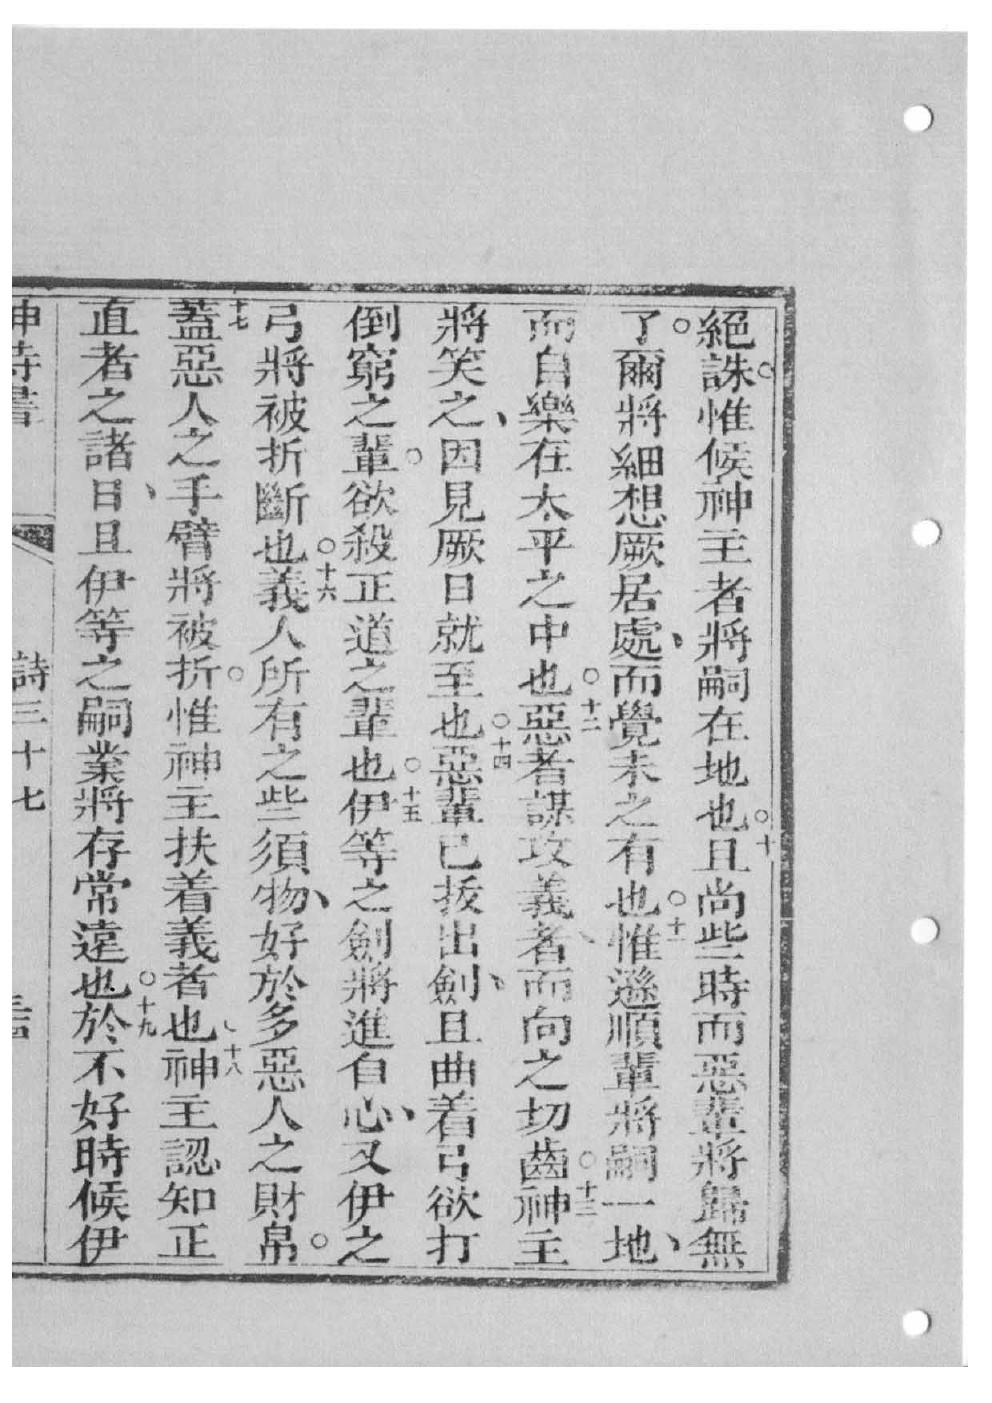 絕誅。惟候神主者將嗣在地也。十且尚些時而惡輩將歸無
了。爾將細想厥居處、而覺未之有也。十一惟遜順輩將嗣一地、
而自樂在太平之中也。十二惡者謀攻義者、而向之切齒。十三神主
將笑之、因見厥日就至也。十四惡輩已拔出劍、且曲着弓欲打
倒窮之輩。欲殺正道之輩也。十五伊等之劍將進自心、又伊之
弓將被折斷也。十六義人所有之些須物、好於多惡人之財帛。
十七蓋惡人之手臂將被折。惟神主扶着義者也、十八神主認知正
直者之諸日、且伊等之嗣業將存常遠也。十九於不好時候伊
神詩書 詩三十七